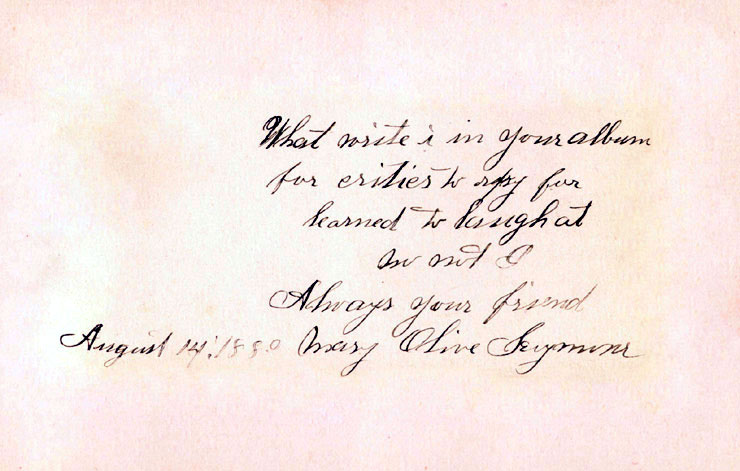 What write i in your album
for crities to spy for
learned to laugh at
no not I
Always your friend
August 14, 1880 Mary Olive Seymour